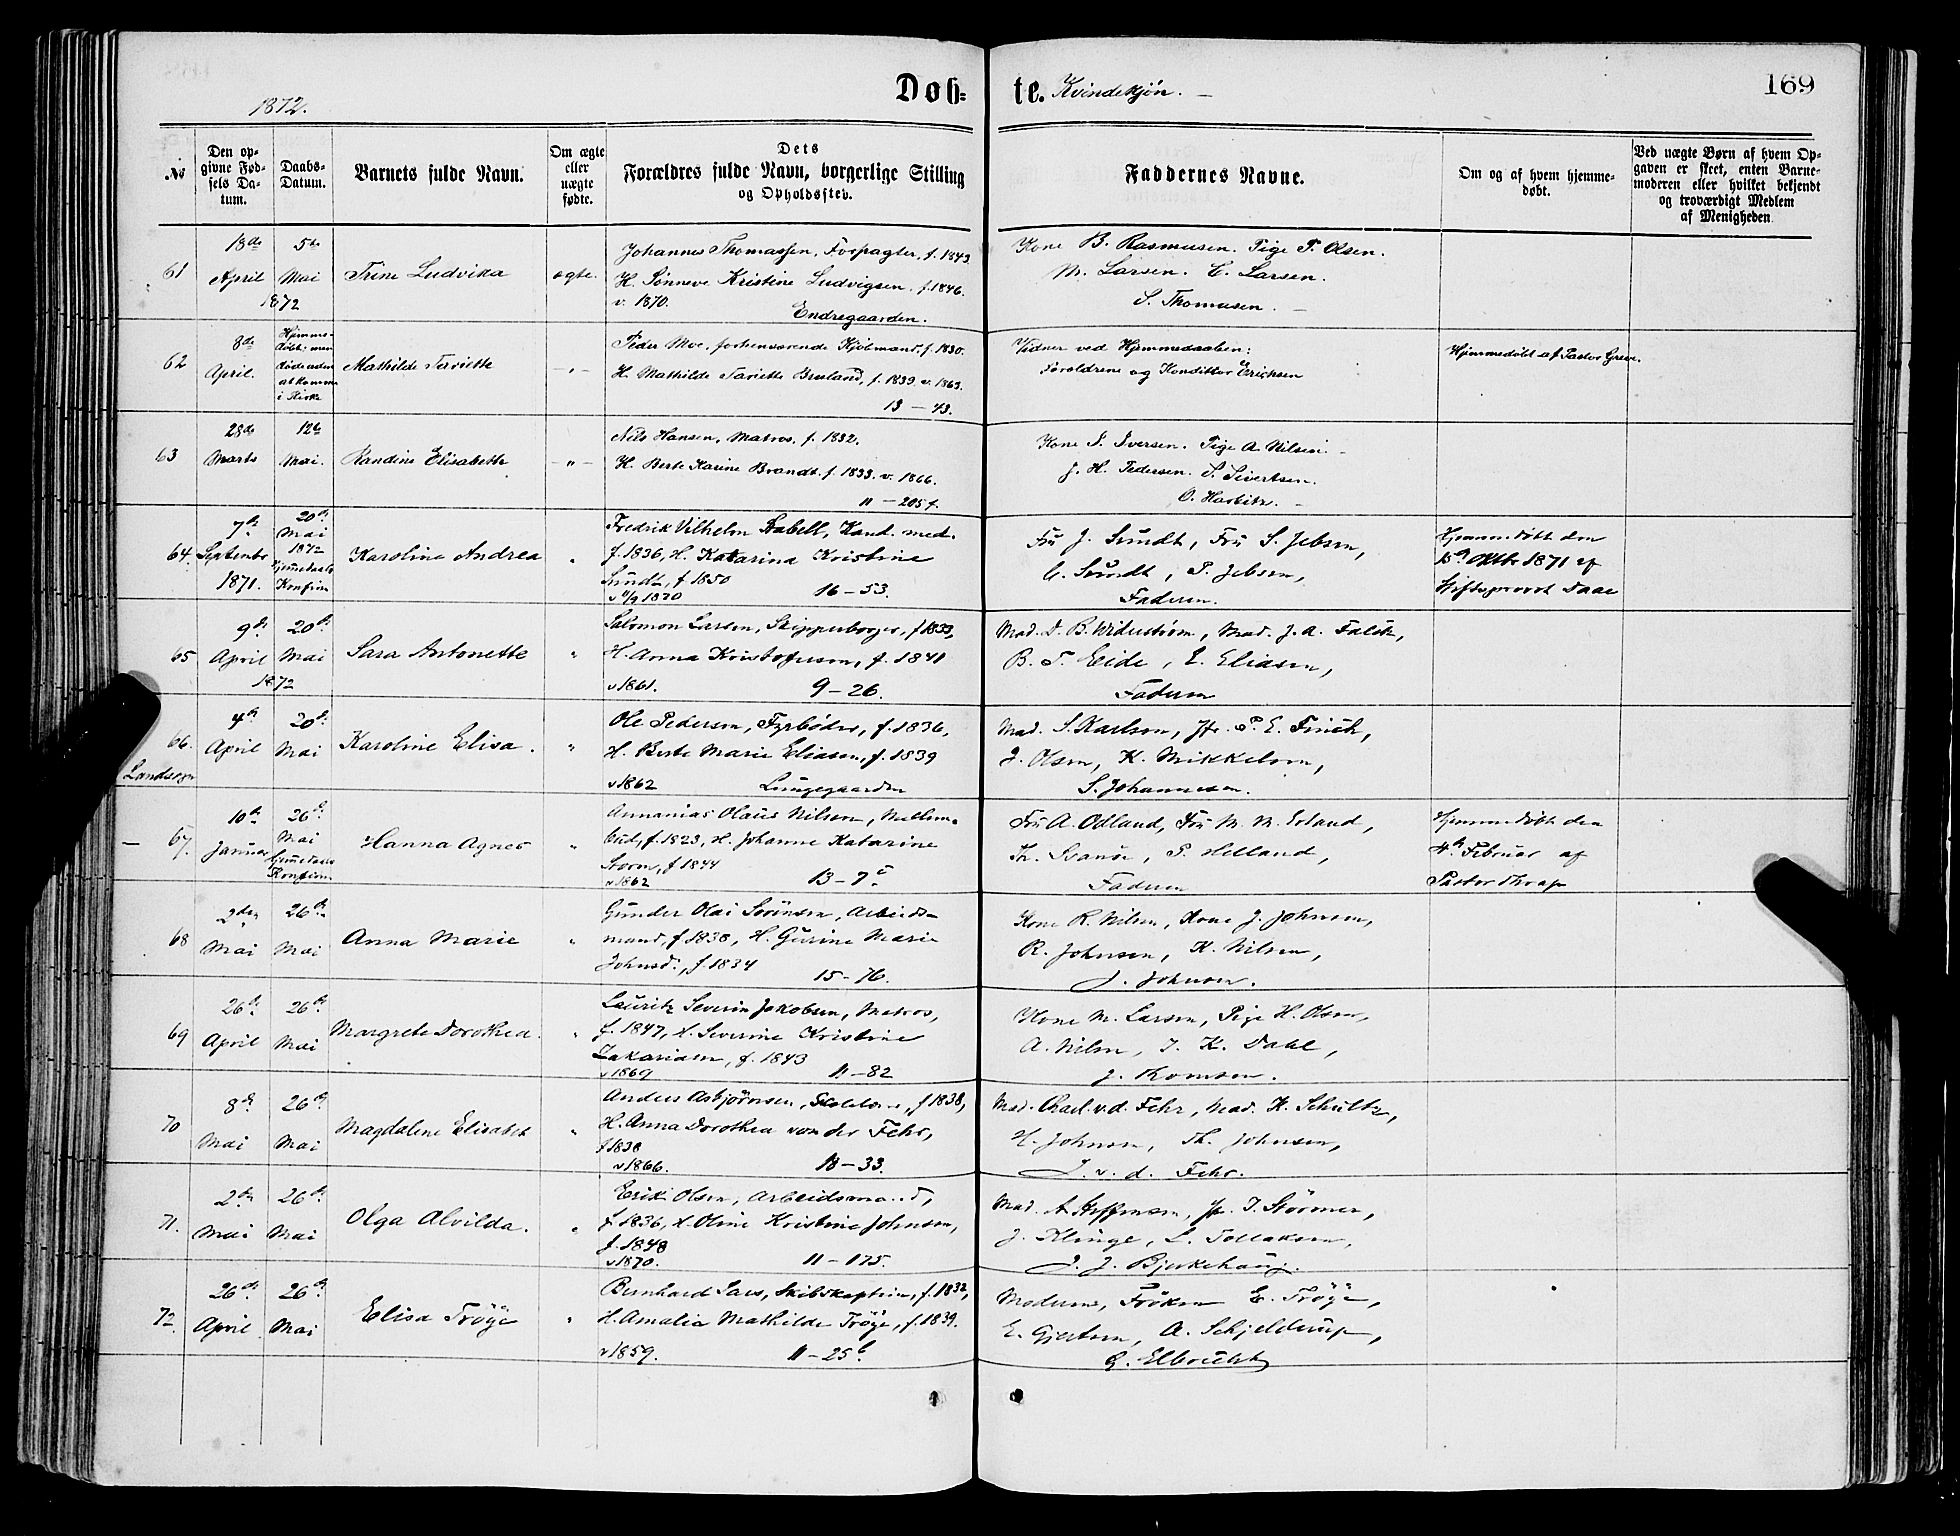 1872.
Døb-
te. Kvindekjøn. —
169
No
Den opgivne Fødsels Datum.
Daabs-Datum.
Barnets fulde Navn.
Om ægte eller uægte fødte.
Dets Forældres fulde Navn, borgerlige Stilling og Opholdssted.
Faddernes Navne.
Om og af hvem hjemmedøbt.
Ved uægte Børn af hvem Opgaven er skeet, enten Barnemoderen eller hvilket bekjendt og troværdigt Medlem af Menigheden.
61
18de April
5te Mai
1872
Trine Ludvika
ægte.
Johannes Thomassen, Forpagter, f. 1843.
H. Sønneve Kristine Ludvigsen, f. 1846.
v. 1870.
Endregaarden.
Kone B. Rasmusen. Pige P. Olsen.
M. Larsen. C. Larsen.
S. Thomasen. —
62
8de April.
Hjemmedøbt; men døde uden at komme i Kirke
Mathilde Tariette
—〃—
Peder Moe, forhenværende Kjøbmand, f. 1830.
H. Mathilde Tariette Bruland, f. 1839. v. 1863.
13 — 43.
Vidner ved Hjemmedaaben:
Forældrene og Konditor Erichsen
Hjemmedøbt af Pastor
63
28de Marts
12te Mai.
Randine Elisabeth
—〃—
Nils Hansen, Matros. f. 1832.
H. Berte Karine Brandt. f. 1833. v. 1866.
11 — 205
Kone S. Iversen. Pige A. Nilsen. —
J. H. Pedersen. S. Sivertsen.
64.
7de Septembr 1871.
20de Mai 1872
Karoline Andrea
〃
Fredrik Vilhelm Stabell, Kand. med.
f. 1836, H. Katarina Kristine
Sundt, f 1850
16 — 53.
Fru J. Sundt, Fru S. Jebsen,
C. Sundt, P. Jebsen,
Faderen.
Hjemmedøbt den
15de Oktbr 1871 af
Stiftsprovst Daae
65
9de April
1872
20de Mai
Sara Antonette
〃
Salomon Larsen, Skipperborger, f 1833,
H. Anna Kristofersen, f. 1841
v 1861.
9 — 26.
Mad. D. B. Widerstrøm, Mad. J. A. Falck,
B. T. Eide, E. Eliasen,
Faderen
66.
Landsogn
4de April
20de Mai
Karoline Elisa.
〃
Ole Pedersen, Fyrbøder, f. 1836,
H. Berte Marie Eliasen, f. 1839
v 1862
Lungegaarden
Mad. S. Karlsen, Jfr. P. E. Finck,
J. Olsen, K. Mikkelsen,
S. Johannesen.
— 67.
10de Januar
26de Mai
Hanna Agnes
〃
Annanias Olaus Nilsen,
f. 1823, H. Johanne Katarine
f 1844
v 1862
13 — 7c
Fru A. Odland, Fru M. M.
Th. Svanøe, P. Helland,
Faderen
Hjemmedøbt den
4de Februar af
Pastor Thrap
68
2den Mai
26de Mai
Anna Marie
〃
Gunder Olai Sørensen, Arbeids-
mand, f 1838, H. Gurine Marie
Johnsd., f. 1834
15 — 76.
Kone R. Nilsen, Kone J. Johnsen,
R. Johnsen, K. Nilsen,
J. Johnsen.
69
26de April
26de Mai
Margrete Dorothea.
〃
Lauritz Severin Jakobsen, Matros,
f. 1847, H. Severine Kristine
Zakariasen, f. 1843
v 1869
11 — 82
Kone M. Larsen, Pige H. Olsen,
A. Nilsen, J. K. Dahl,
70
8de Mai
26de Mai
Magdalene Elisabet
〃
Anders Asbjørnsen, f 1838,
H. Anna Dorothea von der Fehr,
f 1838
v 1866.
18 — 33.
Mad. Charl. v. d. Fehr, Mad. K. Schultz,
H. Johnsen, Th. Johnsen,
J. v. d. Fehr.
71.
2den Mai
26de Mai
Olga Alvilda.
〃
Erik Olsen, Arbeidsmand,
f. 1836, H. Oline Kristine Johnsen,
f. 1848
v 1870.
11 — 175.
Mad. A Steffensen, Jfr J. Størmer,
J. Klinge, L. Tollaksen,
J. J. Bjerkehaug.
72.
26de April
26de Mai
Elisa Trøye
〃
Bernhard Sars, Skibskaptein, f. 1832,
H. Amalia Mathilde Trøye, f. 1839.
v 1859.
11 — 25b
Moderen, Frøken E. Trøye,
E. Gjertsen, A. Schjelderup,